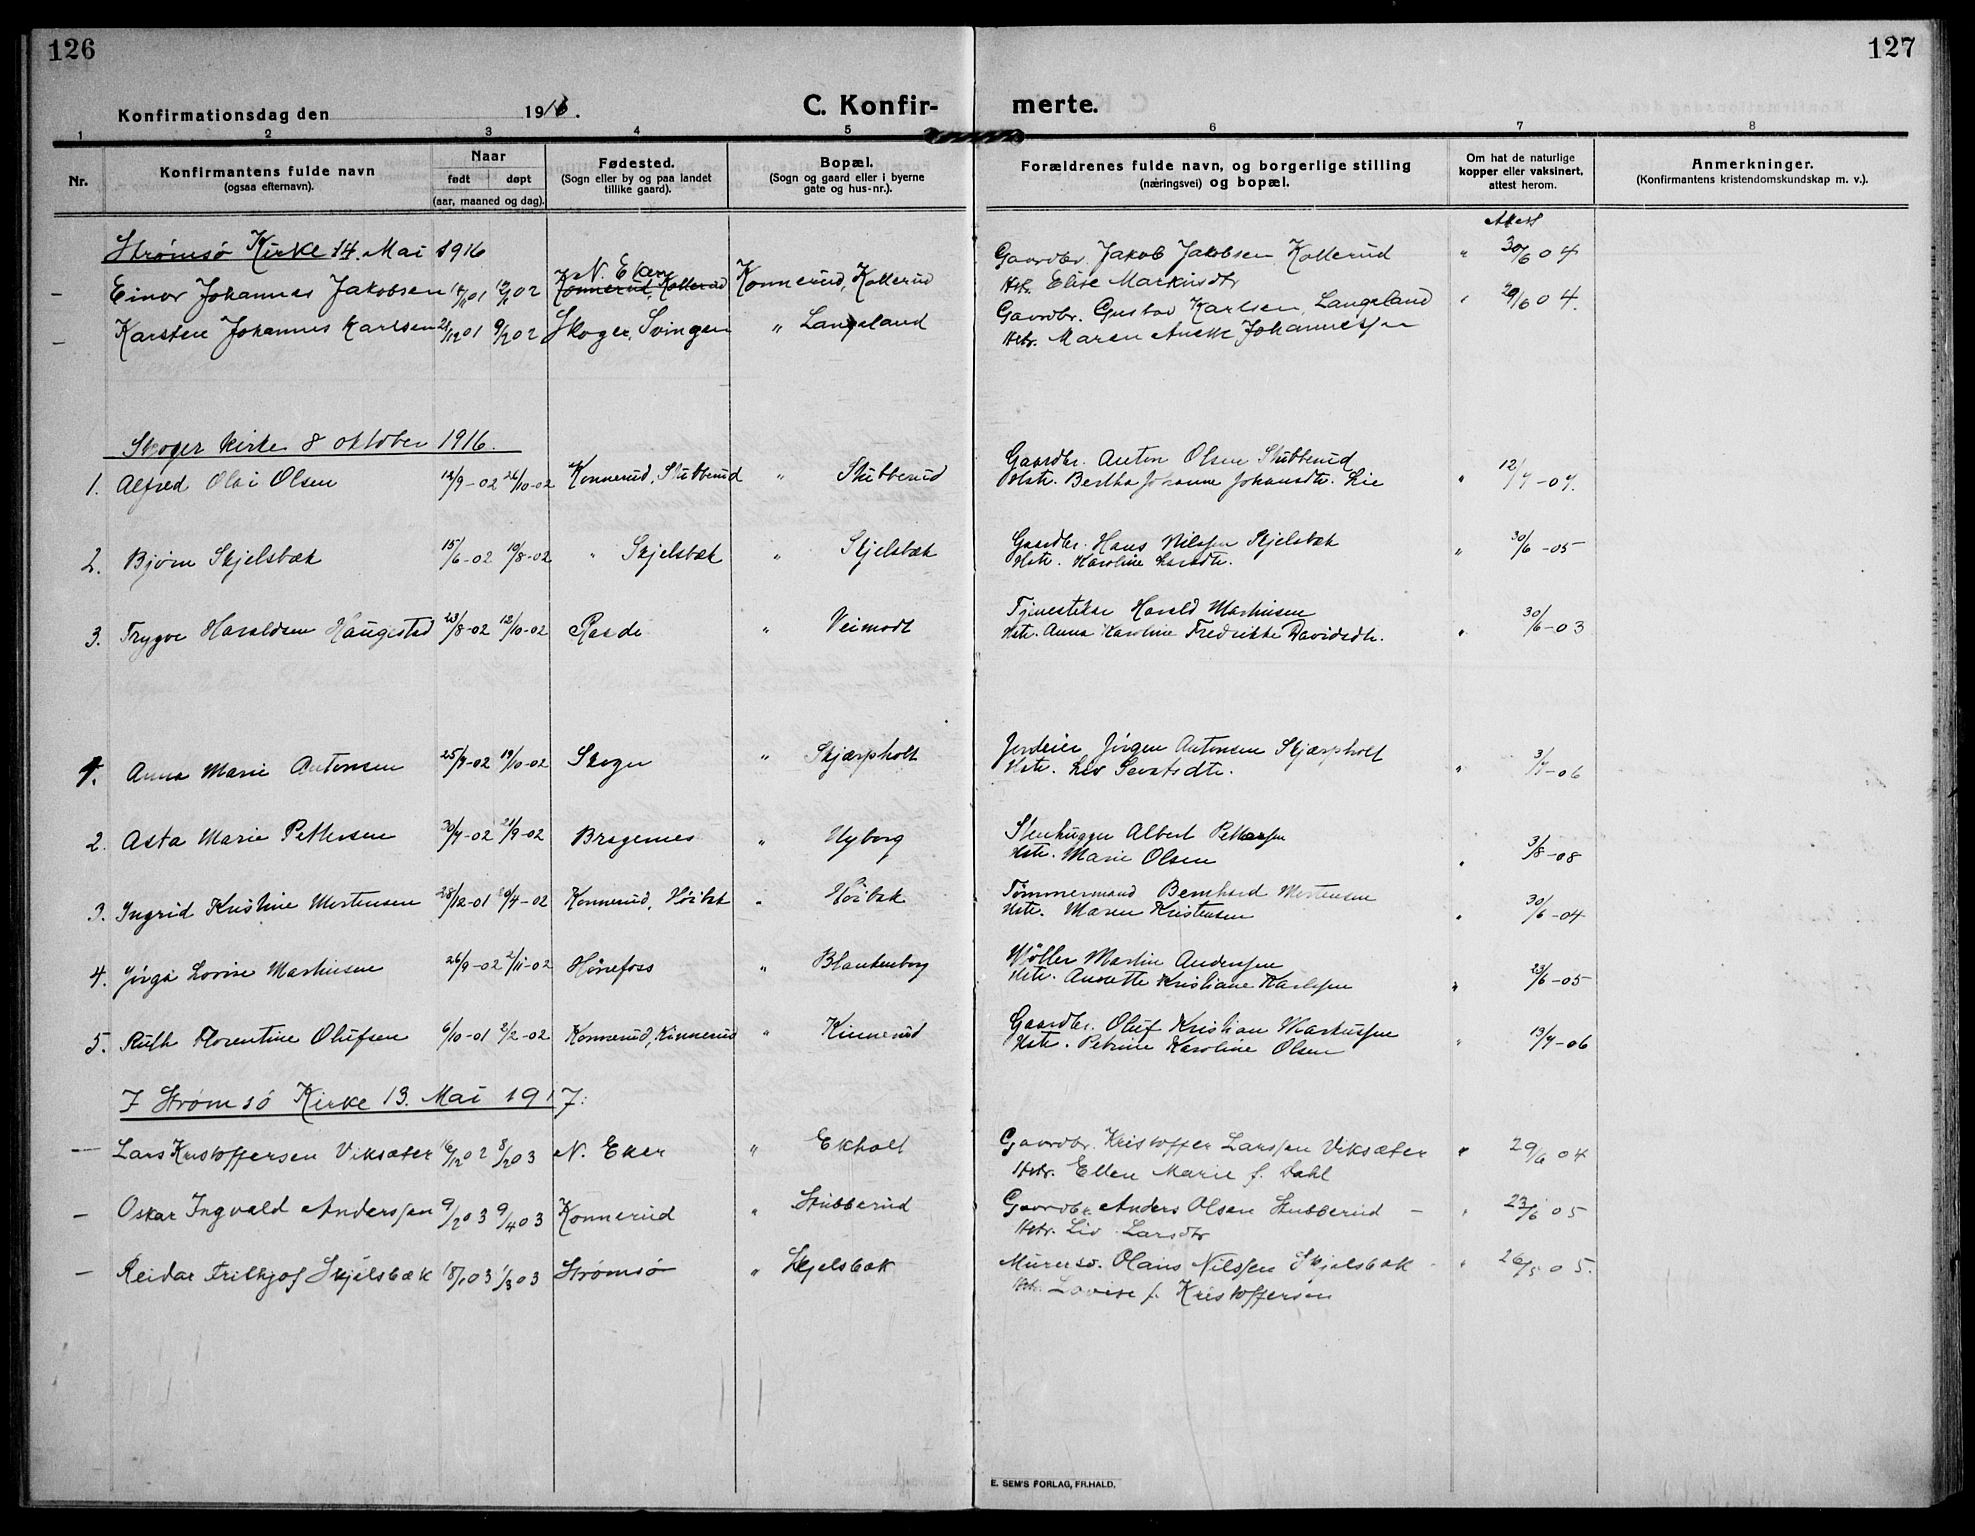 126
127
Konfirmationsdag den 1916.
C. Konfir-
merte.
1 2 3 4 5 6 7 8
Nr.
Konfirmantens fulde navn
(ogsaa efternavn).
Naar
født døpt
(aar, maaned og dag).
Fødested.
(Sogn eller by og paa landet
tillike gaard).
Bopæl.
(Sogn og gaard eller i byerne
gate og hus-nr.).
Forældrenes fulde navn, og borgerlige stilling
(næringsvei) og bopæl.
Om hat de naturlige
kopper eller vaksinert,
attest herom.
Anmerkninger.
(Konfirmantens kristendomskundskap m. v.).
Strømsø Kirke 14. Mai 1916
Attest
N. Eker
– Einar Johannes Jakobsen Konnerud, Kollerud Konnerud, Kollerud Gaardbr. Jakob Jakobsen Kollerud " 30/6 04
Hstr. Elise Markusdtr
– Karsten Johannes Karlsen 21/12 01 9/2 02 Skoger, Svingen " Langeland Gaardbr. Gustav Karlsen, Langeland " 29/6 04.
Hstr. Maren Johannessen
Skoger kirke 8 oktober 1916.
1. Alfred Olai Olsen 12/9-02 26/10-02 Konnerud, Stubberud " Stubberud Gaardbr. Anton Olsen Stubberud
Hstr. Bertha Johanne Johansdtr. Lie "
2. Bjørn Skjelsbæk 15/6-02 10/8-02 " Skjelsbæk " Skjelsbæk Gaardbr. Hans Nilssen Skjelsbæk " 30/6-05
Hstr. Karoline Larsdtr.
3. Trygve Haraldsen Haugestad 23/8-02 12/10-02 Raade " Veimodt Tjenestekar Harald Martinsen
Hstr. Anna Karoline Fredrikke Davidsdtr. " 30/6-03
1. Anna Marie Antonsen 19/10-02 Skoger " Skjærpholt Jordeier Jørgen Antonsen Skjærpholt
Hstr. Liv "
2. Asta Marie Pettersen 21/9-02 Bragernes " Nyborg Stenhugger Albert Pettersen
Hstr. Marie Olsen " 3/8-08
3. Ingrid Kristine Mortensen 28/12-01 Konnerud, Høibæk " Høibæk Tømmermand Bernhard Mortensen
Hstr. Maren Kristensen " 30/6-04
4. Lovise Martinsen 26/9-02 2/11-02 Hønefoss " Blankenborg Møller Martin Anderssen
Hstr. Annette Kristiane Karlssen " 23/6-05
5. Ruth Florentine Olufsen 6/10-01 2/2-02 Konnerud, Kinnerud " Kinnerud Gaardbr. Oluf Kristian Markussen
Hstr. Petrine Karoline Olsen "
I Strømsø Kirke 13. Mai 1917:
– Lars Kristoffersen Viksæter 16/12 02 8/2 03 N. Eker " Ekholt Gaardbr. Kristoffer Larssen Viksæter " 29/6 04
Hstr. Ellen Marie f. Dahl
– Oskar Ingvald Anderssen 9/2 03 9/4 03 Konnerud " Stubberud Gaardbr. Anders Olsen Stubberud – " 23/6 05
Hstr. Liv Larsdtr
– Reidar Frithjof Skjelsbæk 18/1 03 1/3 03 Strømsø " Skjelsbæk Murersv. Olaus Nilssen Skjelsbæk " 26/5 05.
Hstr. Lovise f. Kristoffersen
E. SEM'S FORLAG, FR.HALD.